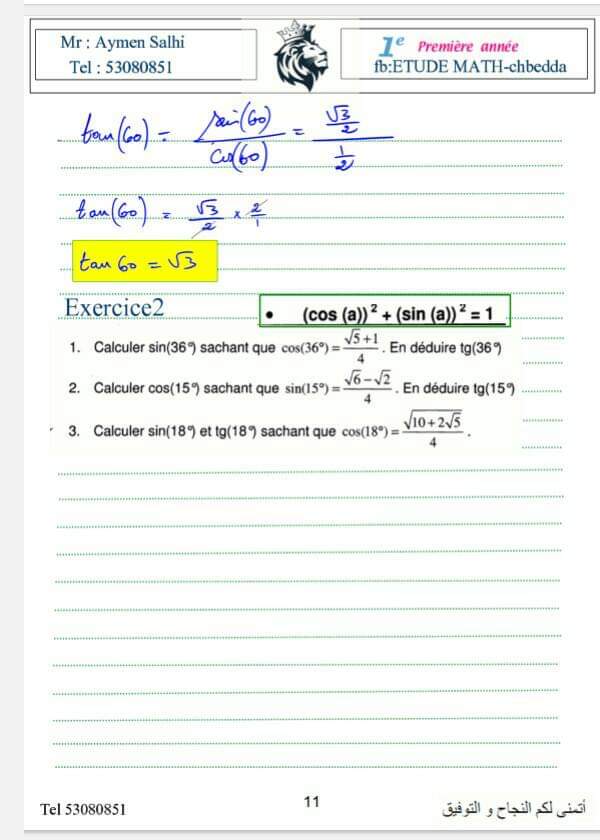 Mr : Aymen Salhi
Tel : 53080851
1e Première année
fb:ETUDE MATH-chbedda
tan(60) = sin(60)/cos(60) = (√3/2)/(1/2)
tan(60) = √3/2 × 2/1
tan 60 = √3
Exercice2
• (cos (a))² + (sin (a))² = 1
1. Calculer sin(36°) sachant que cos(36°) = (√5+1)/4 . En déduire tg(36°)
2. Calculer cos(15°) sachant que sin(15°) = (√6−√2)/4 . En déduire tg(15°)
3. Calculer sin(18°) et tg(18°) sachant que cos(18°) = √(10+2√5)/4 .
Tel 53080851
11
أتمنى لكم النجاح و التوفيق